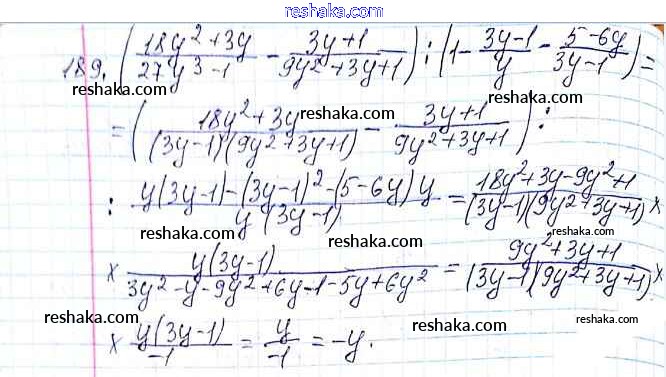 reshaka.com
189. ((18y² + 3y)/(27y³ - 1) - (3y + 1)/(9y² + 3y + 1)) : (1 - (3y - 1)/y - (5 - 6y)/(3y - 1)) =
reshaka.com reshaka.com
= ((18y² + 3y)/((3y - 1)(9y² + 3y + 1)) - (3y + 1)/(9y² + 3y + 1)) :
reshaka.com
reshaka.com reshaka.com
: (y(3y - 1) - (3y - 1)² - (5 - 6y)y)/(y(3y - 1)) = (18y² + 3y - 9y² + 1)/((3y - 1)(9y² + 3y + 1)) ×
reshaka.com reshaka.com
× (y(3y - 1))/(3y² - y - 9y² + 6y - 1 - 5y + 6y²) = (9y² + 3y + 1)/((3y - 1)(9y² + 3y + 1)) ×
reshaka.com reshaka.com reshaka.com
× (y(3y - 1))/(-1) = y/(-1) = -y.
reshaka.com reshaka.com